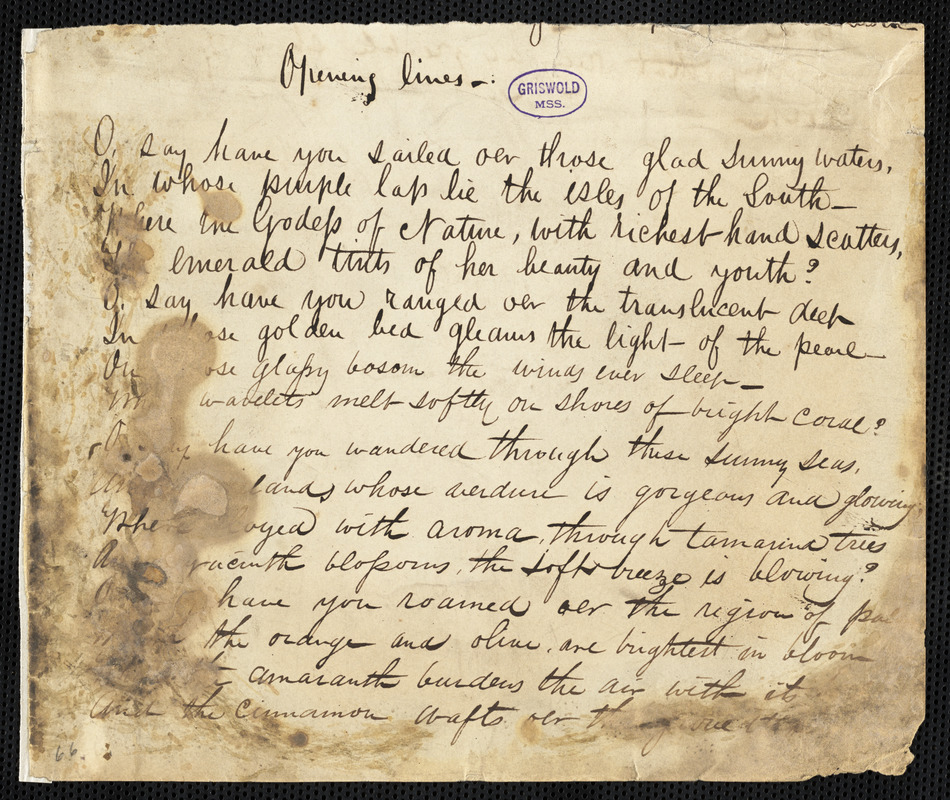 Opening lines —.
GRISWOLD
MSS.
O, say have you sailed oer those glad sunny waters,
In whose purple lap lie the isles of the South —
Where the Godess of Nature, with richest hand scatters,
emerald tints of her beauty and youth?
O, say have you ranged oer the translucent deep
In golden bed gleams the light of the pearl —
On glassy bosom the winds ever sleep —
wavelets melt softly on shores of bright coral?
have you wandered through these sunny seas,
lands whose verdure is gorgeous and glowing
with aroma, through tamarind trees
blossoms, the soft breeze is blowing?
have you roamed oer the region of
the orange and olive, are brightest in bloom
amaranth burdens the air with its
And the cinnamon wafts oer
66.